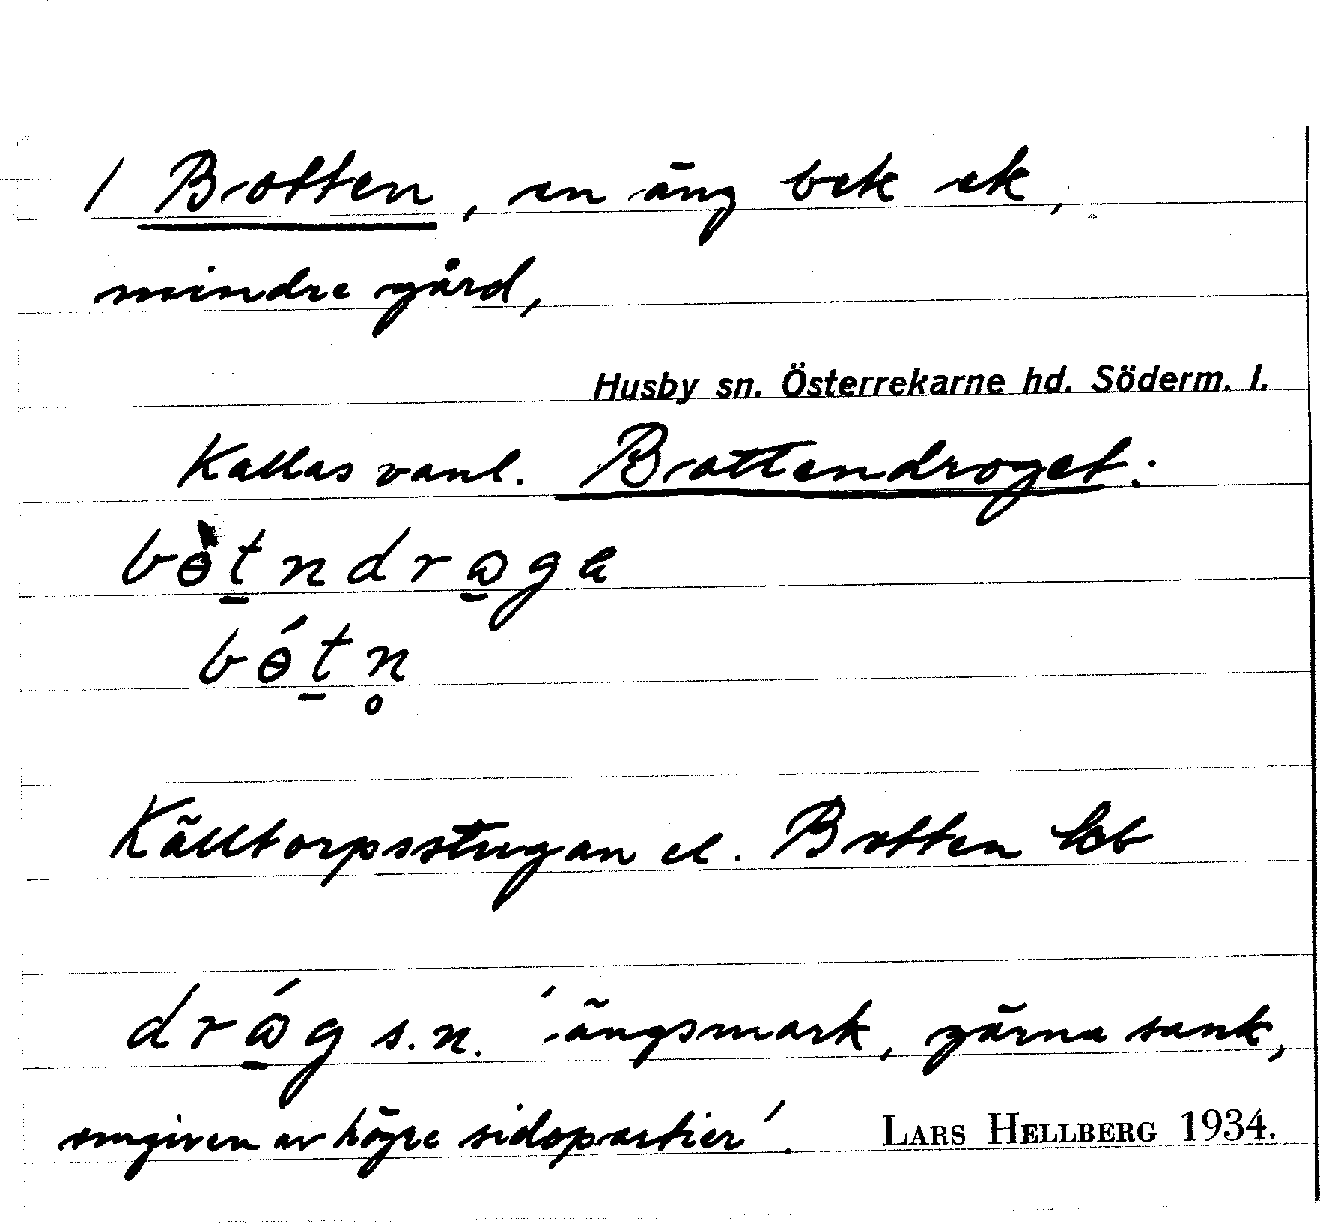 1 Botten, en äng bek ek,
mindre gård,
Husby sn. Österrekarne hd. Söderm. l.
Kallas vanl. Bottendroget:
bɵ̀t̲ndrω̲ge
bɵ́t̲n̥
Källtorpsstugan el. Botten
drώ̲g s.n. 'ängsmark, gärna sank,
omgiven av högre sidopartier'. LARS HELLBERG 1934.